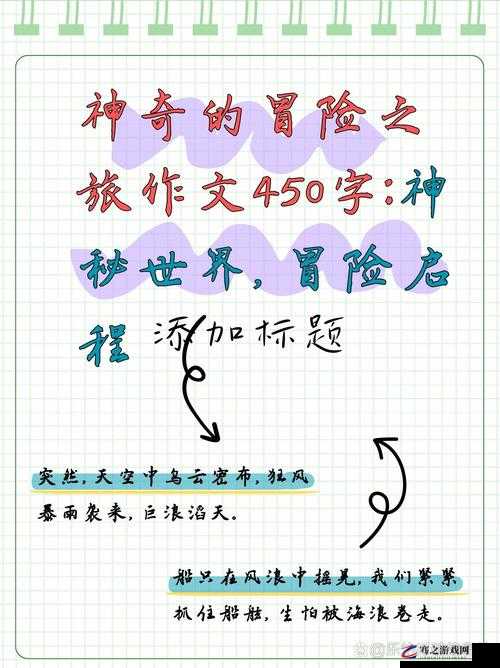 神奇的冒险之
旅作文450字:神
秘世界,冒险启
程 添加标题
突然,天空中乌云密布,狂风
暴雨袭来,巨浪滔天。
船只在风浪中摇晃,我们紧紧
抓住船舷,生怕被海浪卷走。
骞之游戏网